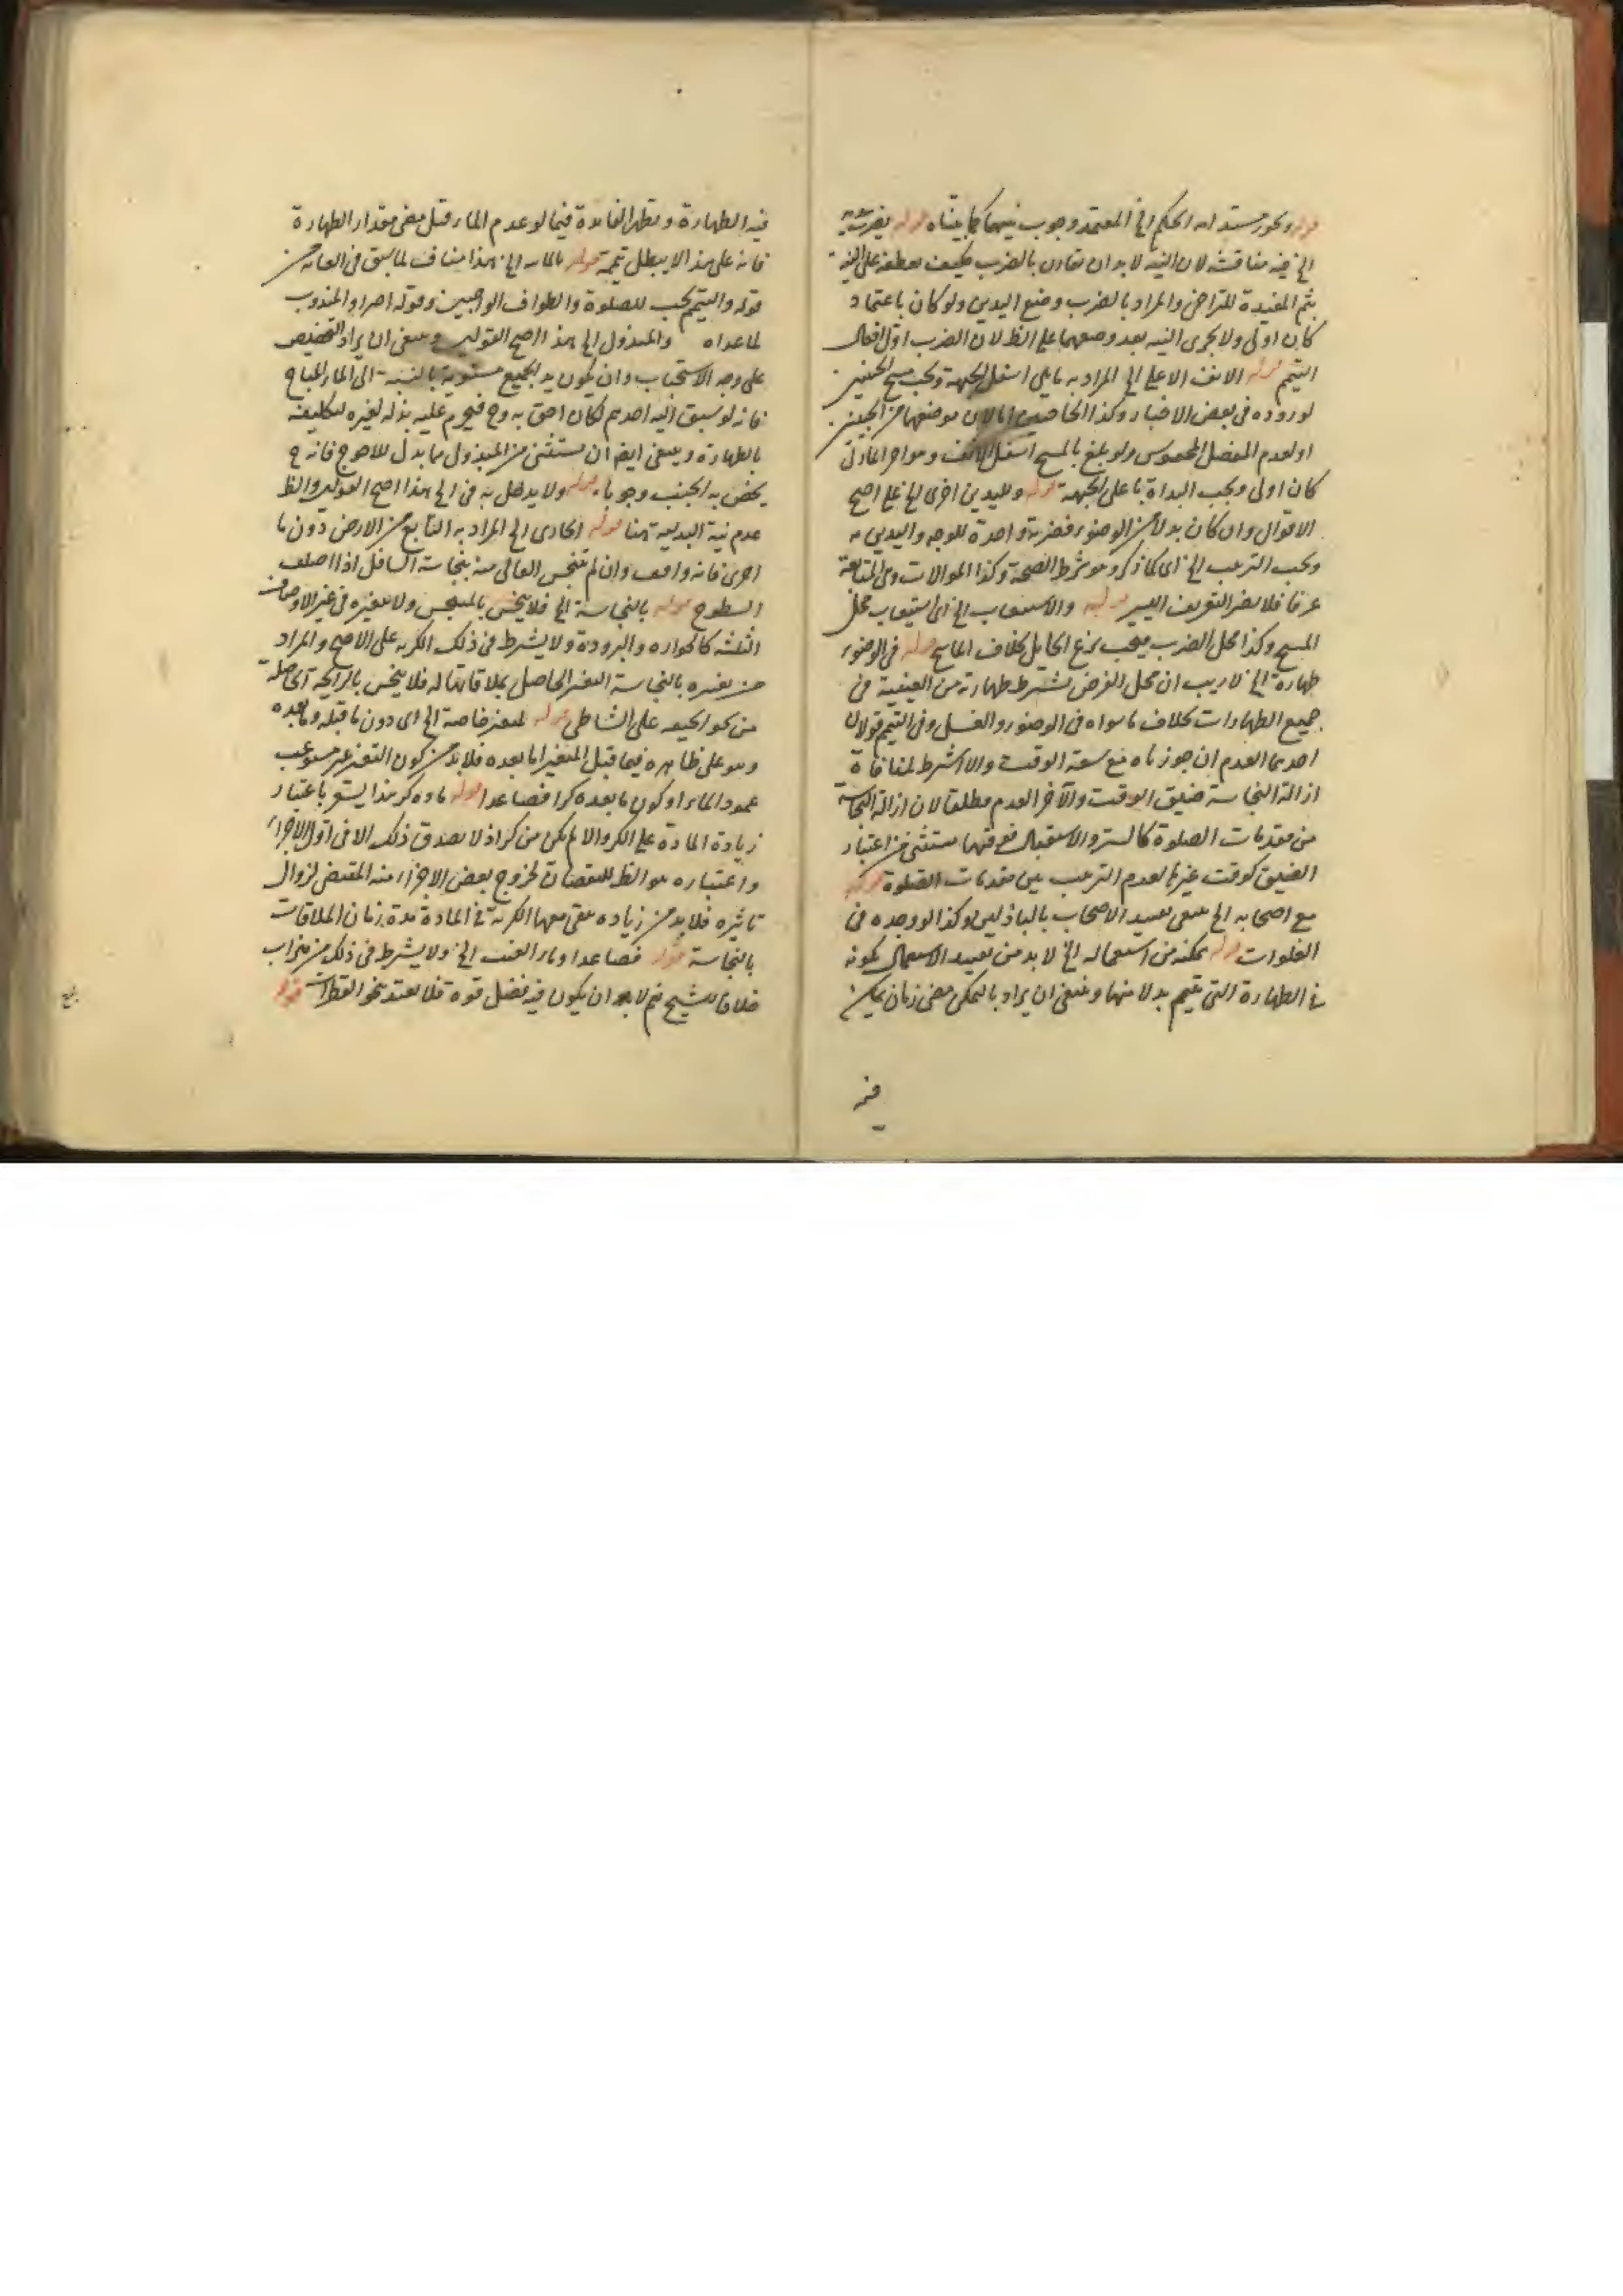 قوله ويجوز مستدامة الحكم الخ المعتمد وجوب نيتهما كما بيناه قوله يضرب
الخ فيه مناقشة لان النية لا بد ان تقارن بالضرب فكيف يعطفه على النية
بثم المفيدة للتراخى والمراد بالضرب وضع اليدين ولو كان باعتماد
كان اولى ولا يجزى النية بعد وضعهما على الظ لان الضرب اول افعال
التيمم قوله الانف الاعلى الخ المراد به ما يلى اسفل الجبهة ويجب مسح الجبينين
لوروده فى بعض الاخبار وكذا الحاجبين اما لان موضعهما من الجبين
او لعدم المفصل المحسوس ولو بلغ بالمسح اسفل الانف وهو آخر المارن
كان اولى ويجب البدأة باعلى الجبهة قوله ولليدين اخرى الخ على اصح
الاقوال وان كان بدلا من الوضوء فضربة واحدة للوجه واليدين
ويجب الترتيب الخ اى كما ذكر وهو شرط الصحة وكذا الموالات وهى المتابعة
عرفا فلا يضر التفريق اليسير قوله والاستيعاب الخ اى استيعاب محل
المسح وكذا محل الضرب فيجب نزع الحايل بخلاف الماسح قوله فى الوضوء
طهارة الخ لا ريب ان محل الفرض يشترط طهارته من العينية فى
جميع الطهارات بخلاف ما سواه فى الوضوء والغسل وفى التيمم قولان
احدهما العدم ان جوزناه مع سعة الوقت والا اشترط لمنافاة
ازالة النجاسة ضيق الوقت والآخر العدم مطلقا لان ازالة النجاسة
من مقدمات الصلوة كالستر والاستقبال فوقتها مستثنى من اعتبار
الضيق كوقت غيرها لعدم الترتيب بين مقدمات الصلوة قوله
مع اصحابه الخ ينبغى تقييد الاصحاب بالباذلين وكذا لو وجده فى
الفلوات قوله يمكنه من استعماله الخ لا بد من تقييد الاستعمال بكونه
فى الطهارة التى تيمم بدلا منها وينبغى ان يراد بالتمكن مضى زمان يمكن
فيه
فيه الطهارة وتظهر الفائدة فيما لو عدم الماء قبل مضى مقدار الطهارة
فانه على هذا لا يبطل تيممه قوله بالماء الخ هذا مناف لما سبق فى الغاية من
قوله والتيمم يجب للصلوة والطواف الواجبين وقوله اخيرا والمندوب
لما عداه والمبذول الخ هذا اصح القولين وينبغى ان يراد التخصيص
على وجه الاستحباب وان يكون يد الجميع مستوية بالنسبة الى الماء المباح
فانه لو سبق اليه احدهم لكان احق به وح فيحرم عليه بذله لغيره لتكليفه
بالطهارة وينبغى ايضا ان يستثنى من المبذول ما بذل للاحوج فانه ح
يختص به الجنب وجوبا قوله ولا يدخل به فى الخ هذا اصح القولين والظ
عدم نية البدلية هنا قوله الجارى الخ المراد به النابع من الارض دون ما
اجرى فانه واقف وان لم ينجس العالى منه بنجاسة السافل اذا اختلف
السطوح قوله بالنجاسة الخ فلا ينجس بالمتنجس ولا بتغيره فى غير الاوصاف
الثلثة كالحرارة والبرودة ولا يشترط فى ذلك الكرية على الاصح والمراد
من تغيره بالنجاسة التغير الحاصل بملاقاتها له فلا ينجس بالرايحة الحاصلة
من نحو الجيفة على الشاطى قوله المتغير خاصة الخ اى دون ما قبله وما بعده
وهو على ظاهره فيما قبل المتغير اما بعده فلا بد من كون التغير غير مستوعب
عمود الماء او كون ما بعده كرا فصاعدا قوله ماده كر هذا يشعر باعتبار
زيادة المادة على الكر والا لم يكن من كر اذ لا يصدق ذلك الا فى اول الاجراء
واعتباره هو الظ للنقصان لخروج بعض الاجزاء منه المقتضى لزوال
تاثيره فلا بد من زيادة يبقى معها الكرية فى المادة مدة زمان الملاقات
بالنجاسة قوله فصاعدا وماء الغيث الخ ولا يشترط فى ذلك من ميزاب
خلافا للشيخ نعم لا بد ان يكون فيه فضل قوة فلا يعتد بنحو القطرات قوله